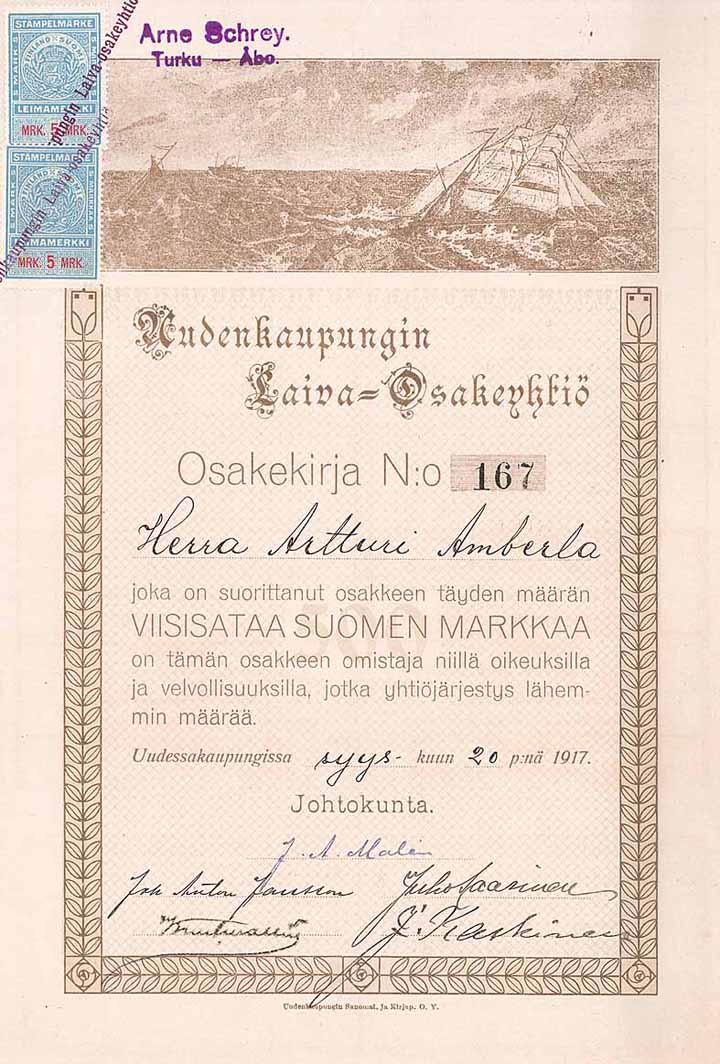 Arne Schrey.
Turku — Åbo.
STAMPELMARKE
FINLAND SUOMI
LEIMAMERKKI
MRK. 5 MRK.
STAMPELMARKE
FINLAND SUOMI
LEIMAMERKKI
MRK. 5 MRK.
pungin Laiva-osakeyhtiö
nkaupungin Laiva-osakeyhtiö
Uudenkaupungin
Laiva-Osakeyhtiö
Osakekirja N:o 167
Herra Artturi Amberla
joka on suorittanut osakkeen täyden määrän
500
VIISISATAA SUOMEN MARKKAA
on tämän osakkeen omistaja niillä oikeuksilla
ja velvollisuuksilla, jotka yhtiöjärjestys lähem-
min määrää.
Uudessakaupungissa syys- kuun 20 p:nä 1917.
Johtokunta.
J. A. Malin
Joh Anton Jansson Juho Saarinen
J. Kaskinen
Uudenkaupungin Sanomat. ja Kirjap. O. Y.